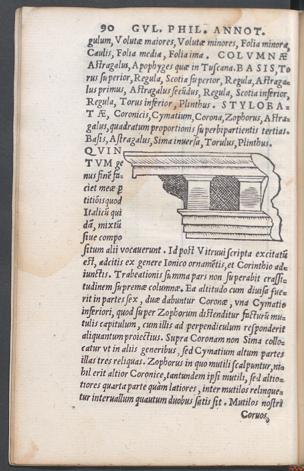 90 GVL. PHIL. ANNOT.
gulum, Volutæ maiores, Volutæ minores, Folia minora,
Caulis, Folia media, Folia ima. COLVMNÆ
Astragalus, Apophyges quæ in Tuscana. BASIS, To
rus superior, Regula, Scotia superior, Regula, Astraga-
lus primus, Astragalus secūdus, Regula, Scotia inferior,
Regula, Torus inferior, Plinthus. STYLOBA-
TÆ, Coronicis, Cymatium, Corona, Zophorus, Astra-
galus, quadratum proportionis superbipartientis tertias.
Basis, Astragalus, Sima inuersa, Torulus, Plinthus.
QVIN
TVM ge
nus sine fa-
ciet meæ p
titiōis quod
Italicū qui
dā, mixtū
siue compo
situm alii vocauerunt. Id post Vitruui scripta excitatū
est, adcitis ex genere Ionico ornamētis, et Corinthio ad-
iunctis. Trabeationis summa pars non superabit crassi-
tudinem supremæ columnæ. Ea altitudo cum diuisa fue-
rit in partes sex, duæ dabuntur Coronæ, vna Cymatio
inferiori, quod super Zophorum distenditur factura mu-
tulis capitulum, cum illis ad perpendiculum responderit
aliquantum proiectius. Supra Coronam non Sima collo-
catur vt in aliis generibus, sed Cymatium altum partes
illas tres reliquas. Zophorus in quo mutili scalpuntur, ni-
bil erit altior Coronice, tantundem ipsi mutili, sed altio-
tiores quarta parte quàm latiores, inter mutilos relinque-
tur interuallum quantum duobus satis sit. Mutilos nostri
Coruos,